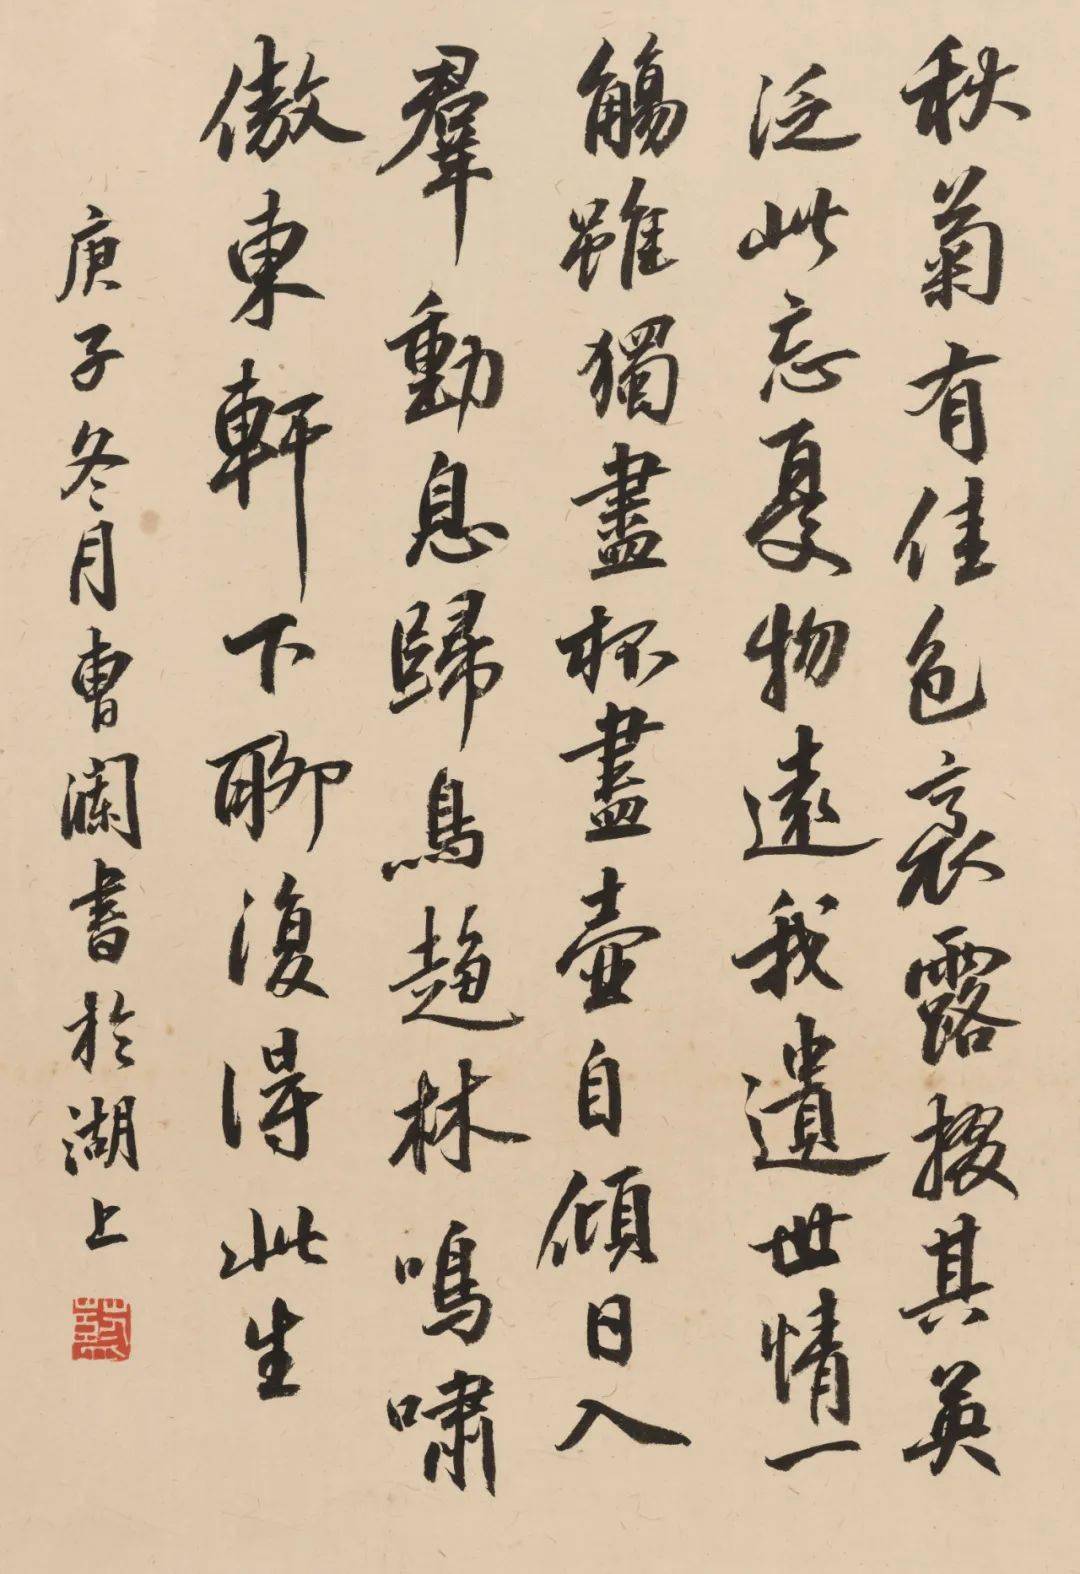 秋菊有佳色裛露掇其英
泛此忘憂物遠我遺世情一
觴雖獨盡杯盡壺自傾日入
羣動息歸鳥趨林鳴嘯
傲東軒下聊復得此生
庚子冬月曹瀾書於湖上